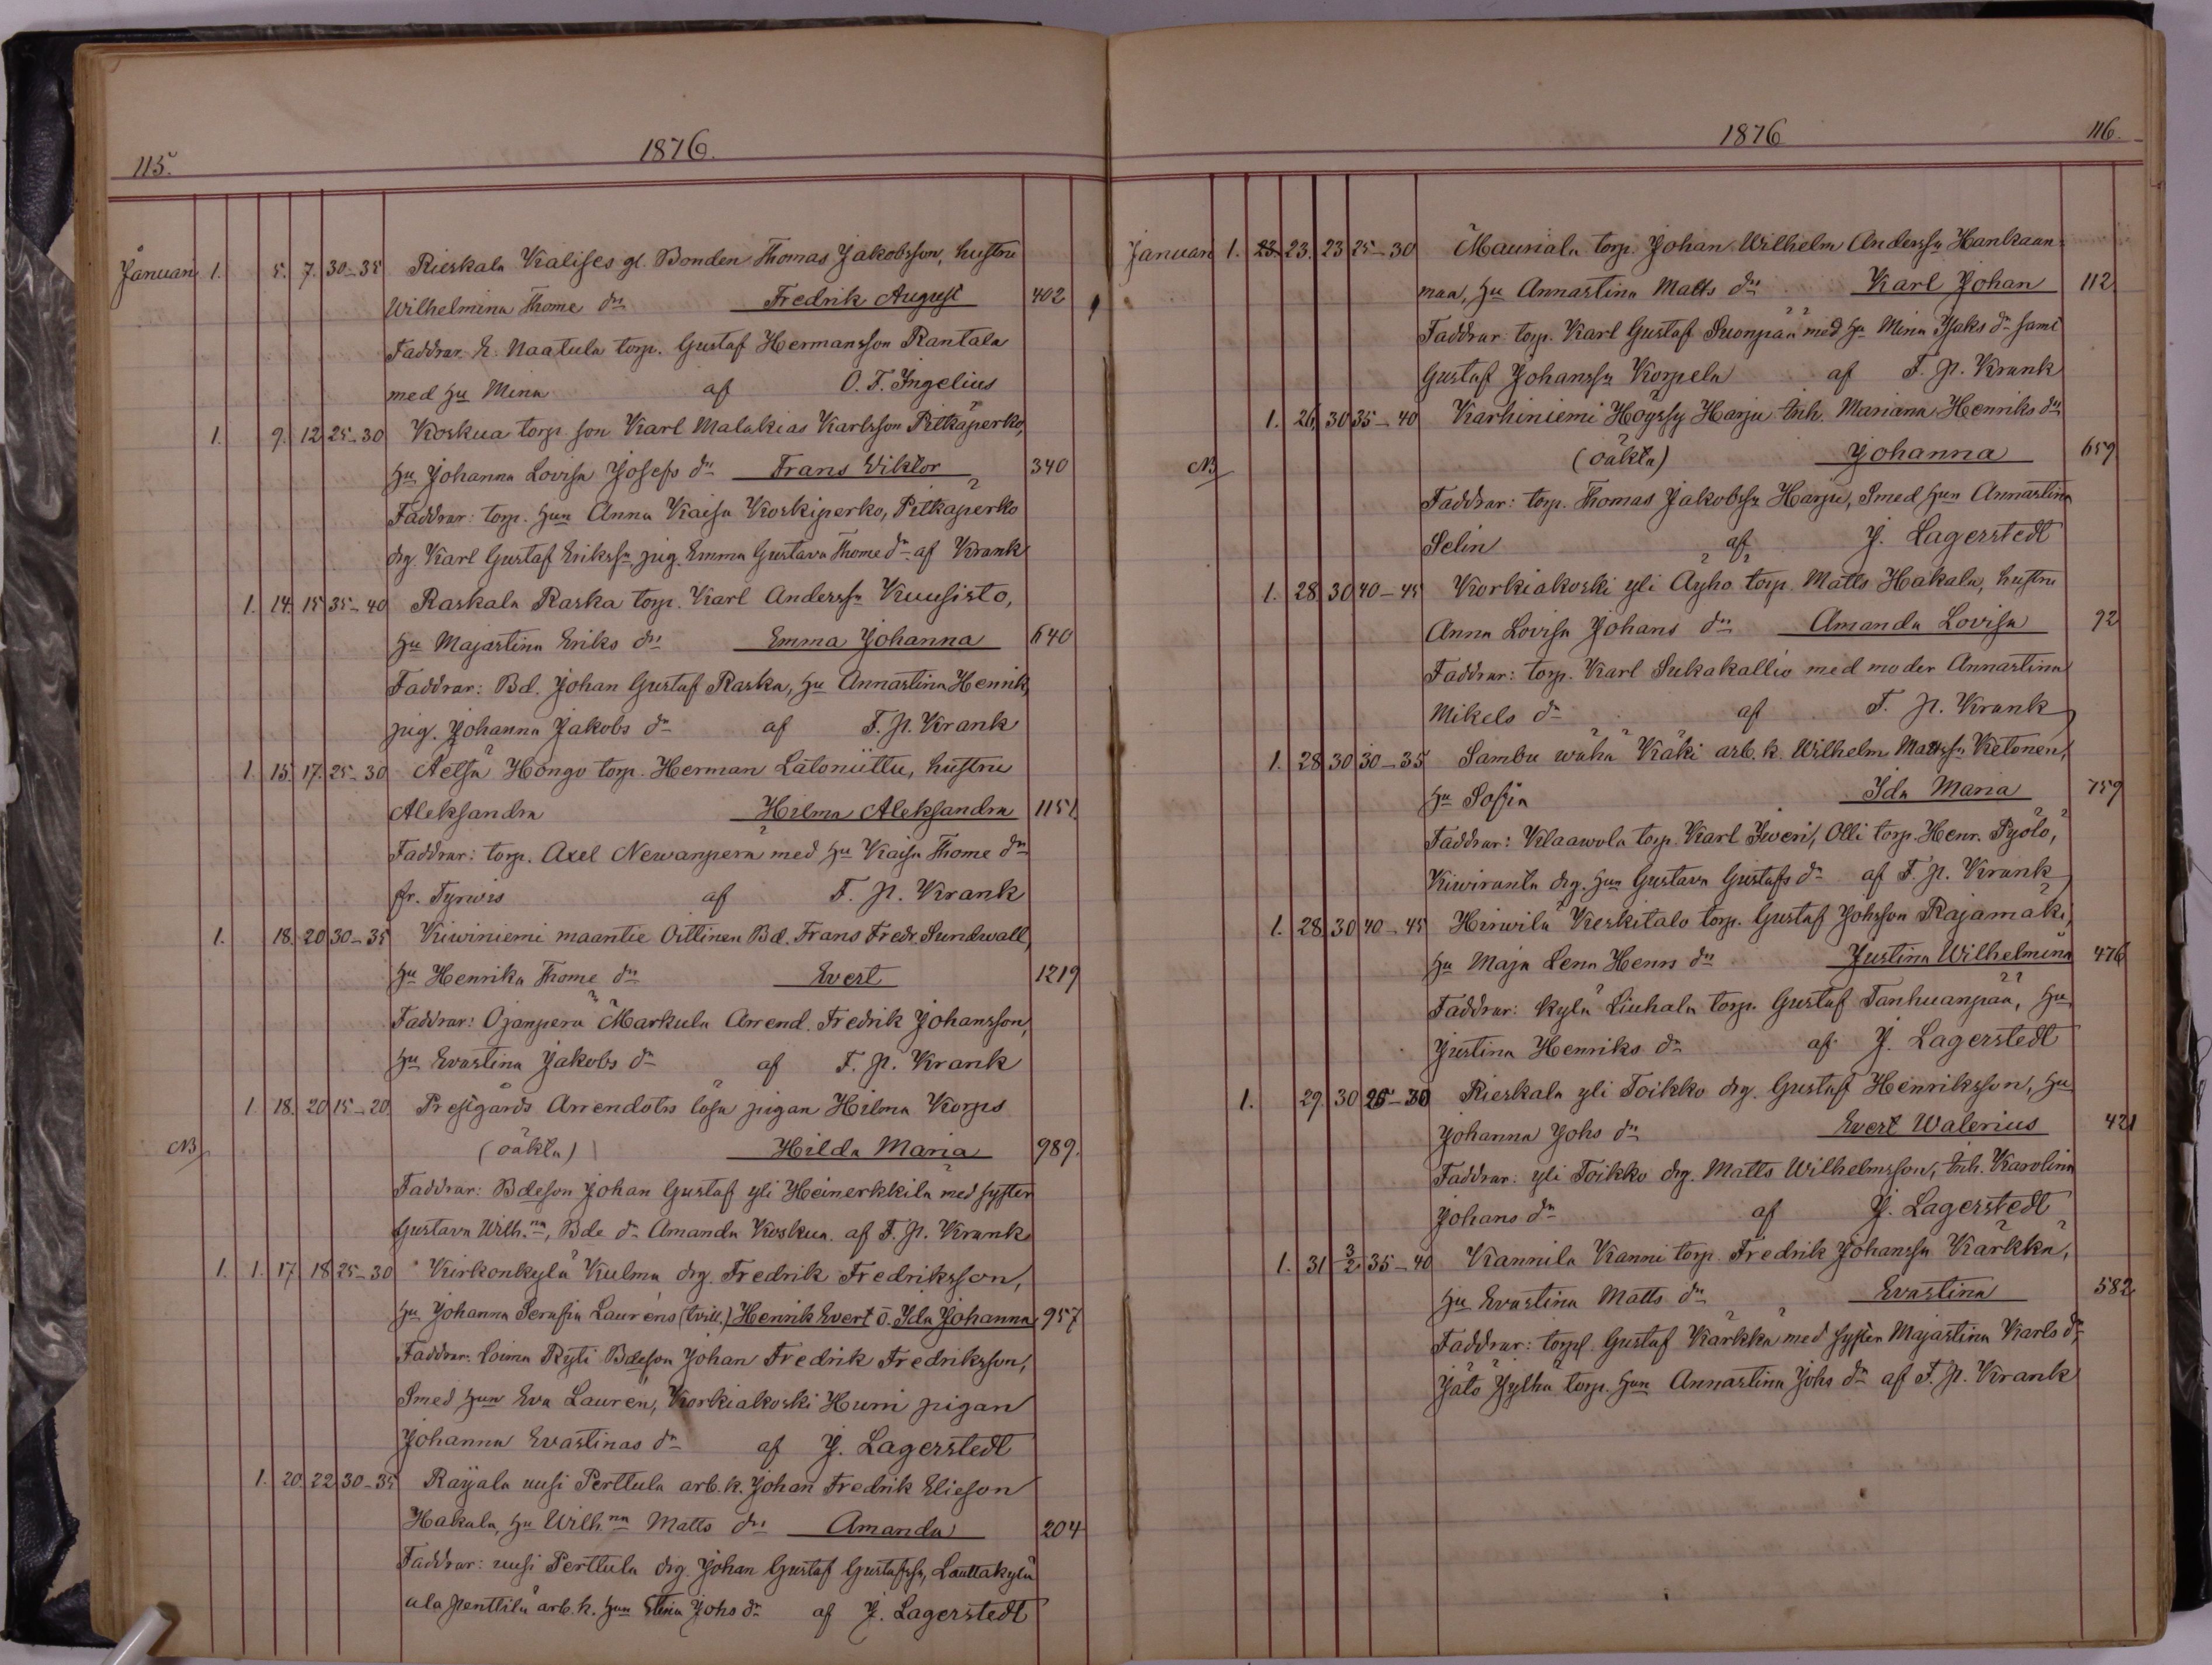 115.
1876.
Januari 1. 5. 7. 30-35 Rieskala Kalises gl. Bonden Thomas Jakobsson, hustru
Wilhelmina Thome dr Fredrik August 402
Faddrar: E. Naatula torp. Gustaf Hermansson Rantala
med hu Mina af O. F. Ingelius
1. 9. 12 25-30 Koskua torp. son Karl Malakias Karlsson Pitkäperko,
hu Johanna Lovisa Josefs dr Frans Wiktor 340
Faddrar: torp. hun Anna Kaisa Koskiperko, Pitkäperko
drg. Karl Gustaf Erikssn, pig. Emma Gustava Thome dr af Krank
1. 14. 15 35-40 Raskala Raska torp. Karl Anderssn Kuusisto,
hu Majastina Eriks dr Emma Johanna 640
Faddrar: Bd. Johan Gustaf Raska, hu Annastina Henrik,
pig. Johanna Jakobs dr af F. P. Krank
1. 15. 17. 25-30 Aetsä Hongo torp. Herman Latoniittu, hustru
Aleksandra Hilma Aleksandra 1151
Faddrar: torp. Axel Newanperä med hu Kaisa Thome dr
fr. Tyrwis af F. P. Krank
1. 18. 20 30-35 Kiwiniemi maantie Oittinen Bd. Frans Fredr. Sundwall,
hu Henrika Thome dr Evert 1219
Faddrar: Ojanperä Markula Arrend. Fredrik Johansson,
hu Evastina Jakobs dr af F. P. Krank
1. 18. 20 15-20 Prestgårds Arrendots lösa pigan Hilma Korps
NB (oäkta) Hilda Maria 989.
Faddrar: Bdeson Johan Gustaf yli Heinerkkilä med syster
Gustava Wilh.na, Bde dr Amanda Koskua. af F. P. Krank
1. 1. 17 18 25-30 Kirkonkylä Kulma drg. Fredrik Fredriksson,
hu Johanna Serafia Lauréns (tvill.) Henrik Evert o. Ida Johanna 957
Faddrar: Loima Ryti Bdeson Johan Fredrik Fredriksson,
Smed hun Eva Lauren, Korkiakoski Humi pigan
Johanna Evastinas dr af J. Lagerstedt
1. 20. 22 30-35 Raijala uusi Perttula arb. k. Johan Fredrik Elieson
Hakala, hu Wilh.na Matts dr Amanda 204
Faddrar: uusi Perttula drg. Johan Gustaf Gustafssn, Lauttakylä
ala Penttilä arb. k. hun Stina Johs dr af J. Lagerstedt
1876
116.
Januari 1. 23. 23. 23 25-30 Mauriala torp. Johan Wilhelm Anderssn Hankaan-
maa, hu Annastina Matts dr Karl Johan 112
Faddrar: torp. Karl Gustaf Suonpää med hu Mina Isaks dr samt
Gustaf Johanssn Korpela af F. P. Krank
1. 26, 30 35-40 Karhiniemi Höyssy Harju Inh. Mariana Henriks dr
NB (oäkta) Johanna 659
Faddrar: torp. Thomas Jakobssn Harju, Smed hun Annastina
Selin af J. Lagerstedt
1. 28 30 40-45 Korkiakoski yli Äyho torp. Matts Hakala, hustru
Anna Lovisa Johans dr Amanda Lovisa 92
Faddrar: torp. Karl Sukakallio med moder Annastina
Mikels dr af F. P. Krank
1. 28 30 30-35 Sambu wähä Käki arb. k. Wilhelm Mattssn Ketonen,
hu Sofia Ida Maria 759
Faddrar: Klaawola torp. Karl Iweri, Olli torp. Henr. Pyölö,
Kiwiranta drg. hun Gustava Gustafs dr af F. P. Krank
1. 28 30 40-45 Hirwilä Keskitalo torp. Gustaf Johsson Rajamäki,
hu Maja Lena Henrs dr Justina Wilhelmina 476
Faddrar: kylä Liuhala torp. Gustaf Tanhuanpää, hu
Justina Henriks dr af J. Lagerstedt
1. 29 30 25-30 Rieskala yli Toikko drg. Gustaf Henriksson, hu
Johanna Johs dr Evert Walerius 421
Faddrar: yli Toikko drg. Matts Wilhelmsson, Inh. Karolina
Johans dr af J. Lagerstedt
1. 31 3/2 35-40 Kannila Kanni torp. Fredrik Johanssn Kärkkä,
hu Evastina Matts dr Evastina 582
Faddrar: torp. Gustaf Kärkkä med syster Majastina Karls dr,
Jätö Jylhä torp. hun Annastina Johs dr af F. P. Krank